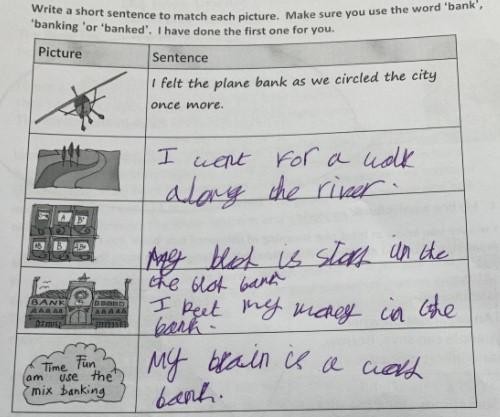 Write a short sentence to match each picture. Make sure you use the word 'bank',
'banking 'or 'banked'. I have done the first one for you.
Picture
Sentence
I felt the plane bank as we circled the city
once more.
I went for a walk
along the river.
A
B
AB
B
AB
My blot is stors in the
the blot bank
BANK
I keet my money in the
bank.
Time Fun
am use the
mix banking
My brain is a word
bank.